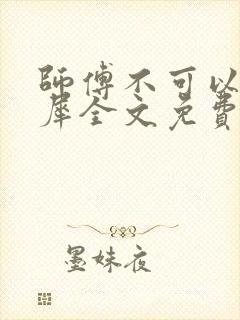 師傅不可以
犀全文免費
墨妹夜